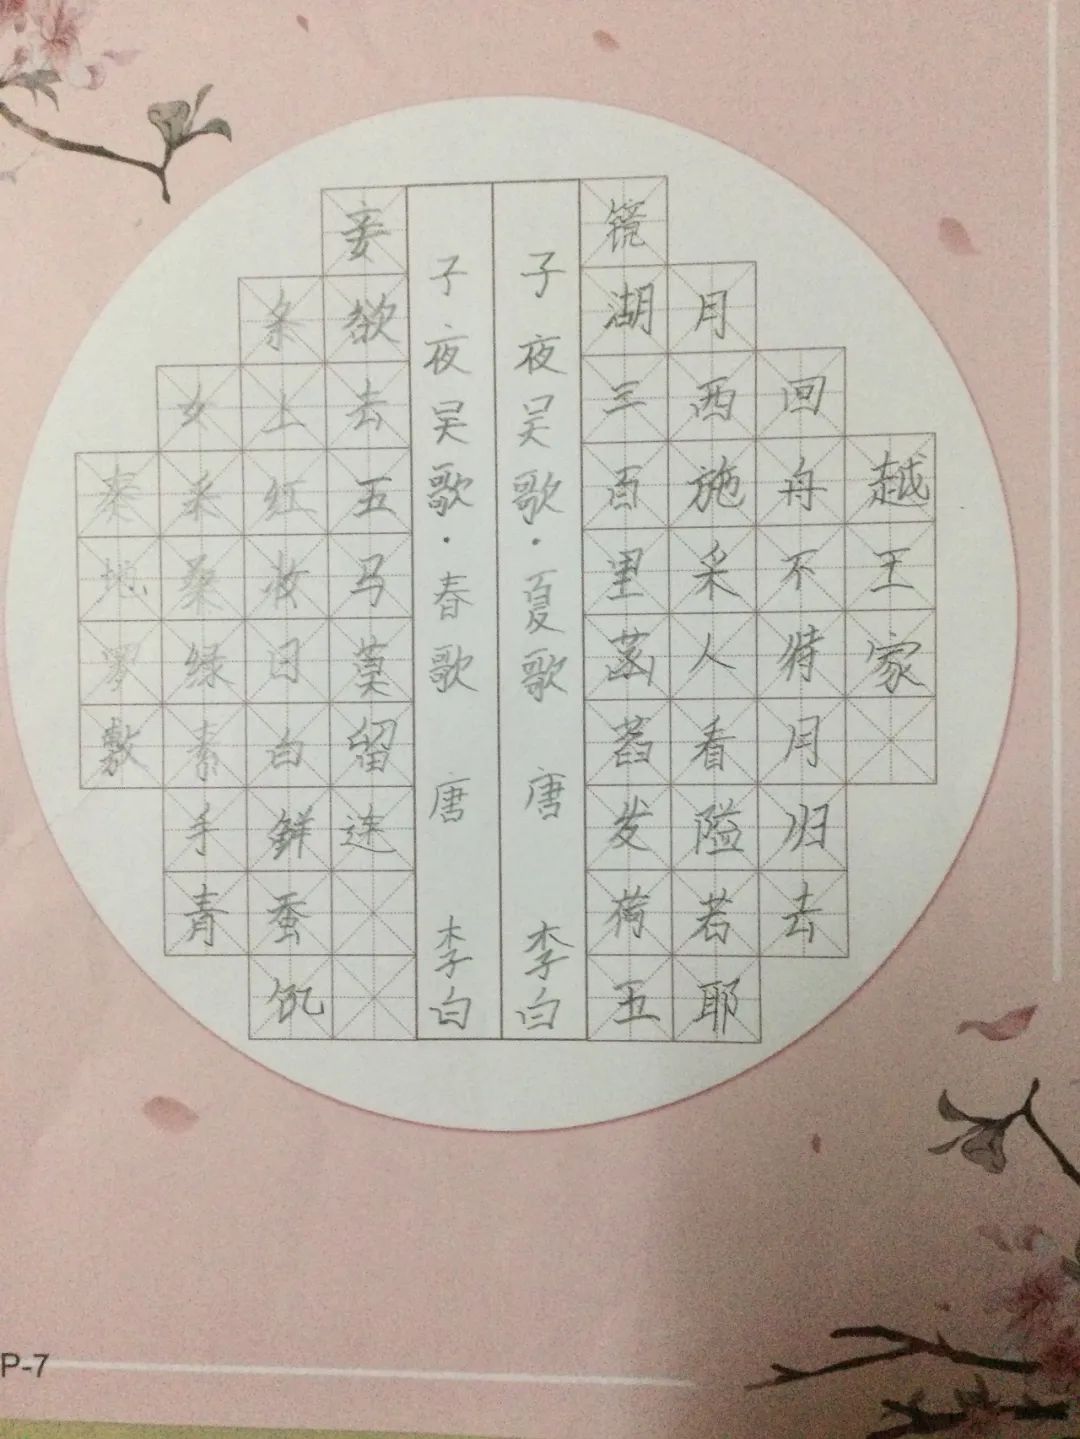 秦地罗敷
女采桑绿素手青
条上红妆日白鲜蚕饥
妾欲去五马莫留连
子夜吴歌·春歌 唐 李白
子夜吴歌·夏歌 唐 李白
镜湖三百里菡萏发荷五
月西施采人看隘若耶
回舟不特月归去
越王家
P-7